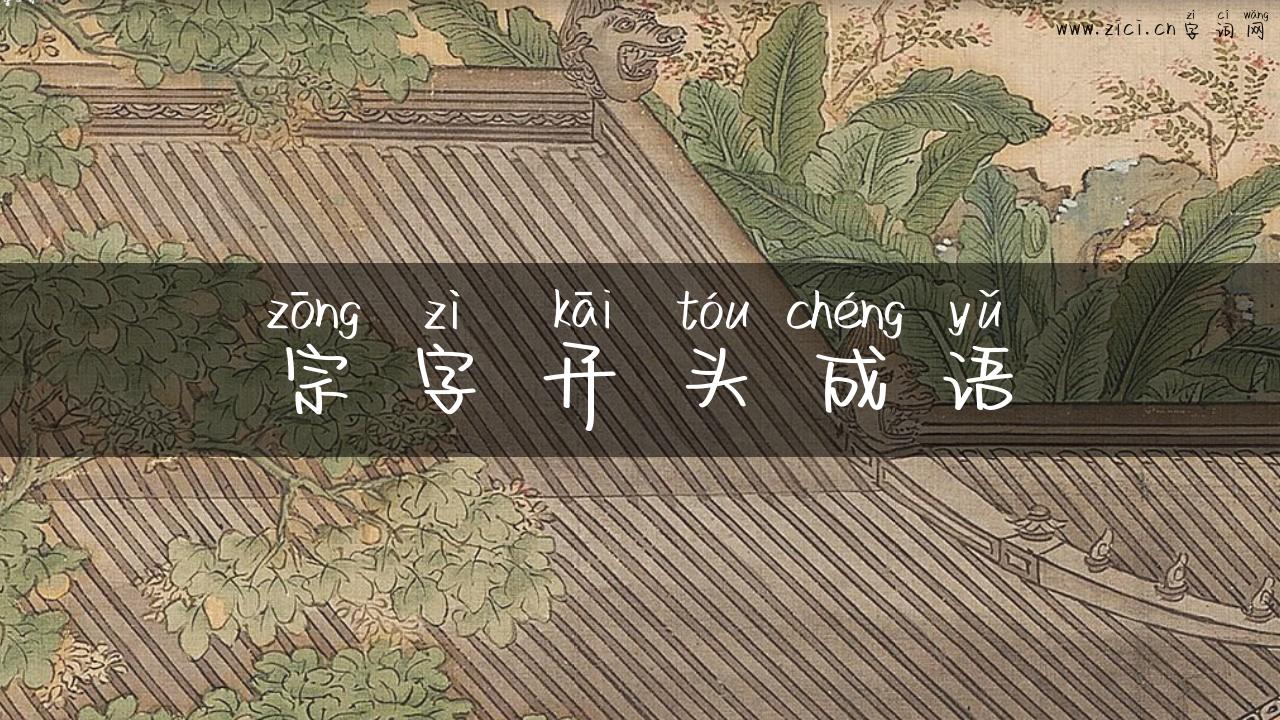 zì cí wǎng
www.zici.cn 字词网
zōng zì kāi tóu chéng yǔ
宗字开头成语